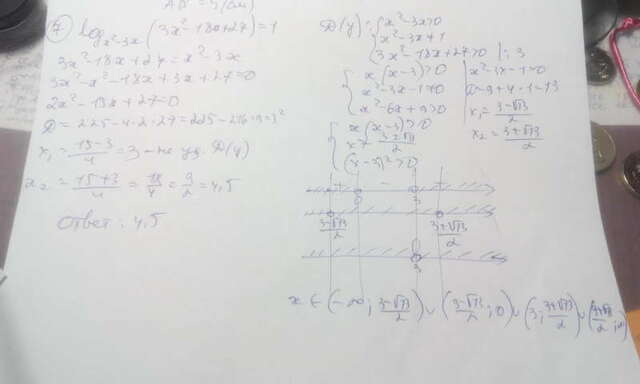 ⑦ log x²-3x (3x²-18x+27)=1
3x²-18x+27=x²-3x
3x²-x²-18x+3x+27=0
2x²-15x+27=0
D=225-4·2·27=225-216=9=3²
x₁=(15-3)/4=3-не уд. D(y)
x₂=(15+3)/4=18/4=9/2=4,5
Ответ: 4,5
D(y): {x²-3x>0
x²-3x≠1
3x²-18x+27>0 |:3
{x(x-3)>0
x²-3x-1≠0
x²-6x+9>0
{x(x-3)>0
x≠(3±√13)/2
(x-3)²>0
x²-3x-1=0
D=9+4·1=13
x₁=(3-√13)/2
x₂=(3+√13)/2
+ - 
0 3
(3-√13)/2 (3+√13)/2
3
x∈(-∞; (3-√13)/2)∪((3-√13)/2; 0)∪(3; (3+√13)/2)∪((3+√13)/2; ∞)